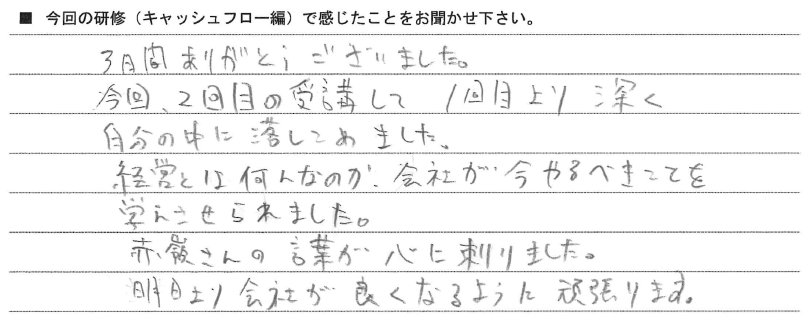 ■ 今回の研修（キャッシュフロー編）で感じたことをお聞かせ下さい。
3日間ありがとうございました。
今回、2回目の受講して 1回目より 深く
自分の中に 落しこめ ました。
経営とは何んなのか、会社が今やるべきことを
学んさせられました。
赤嶺さんの 言葉が 心に刺りました。
明日より 会社が 良くなるように 頑張ります。